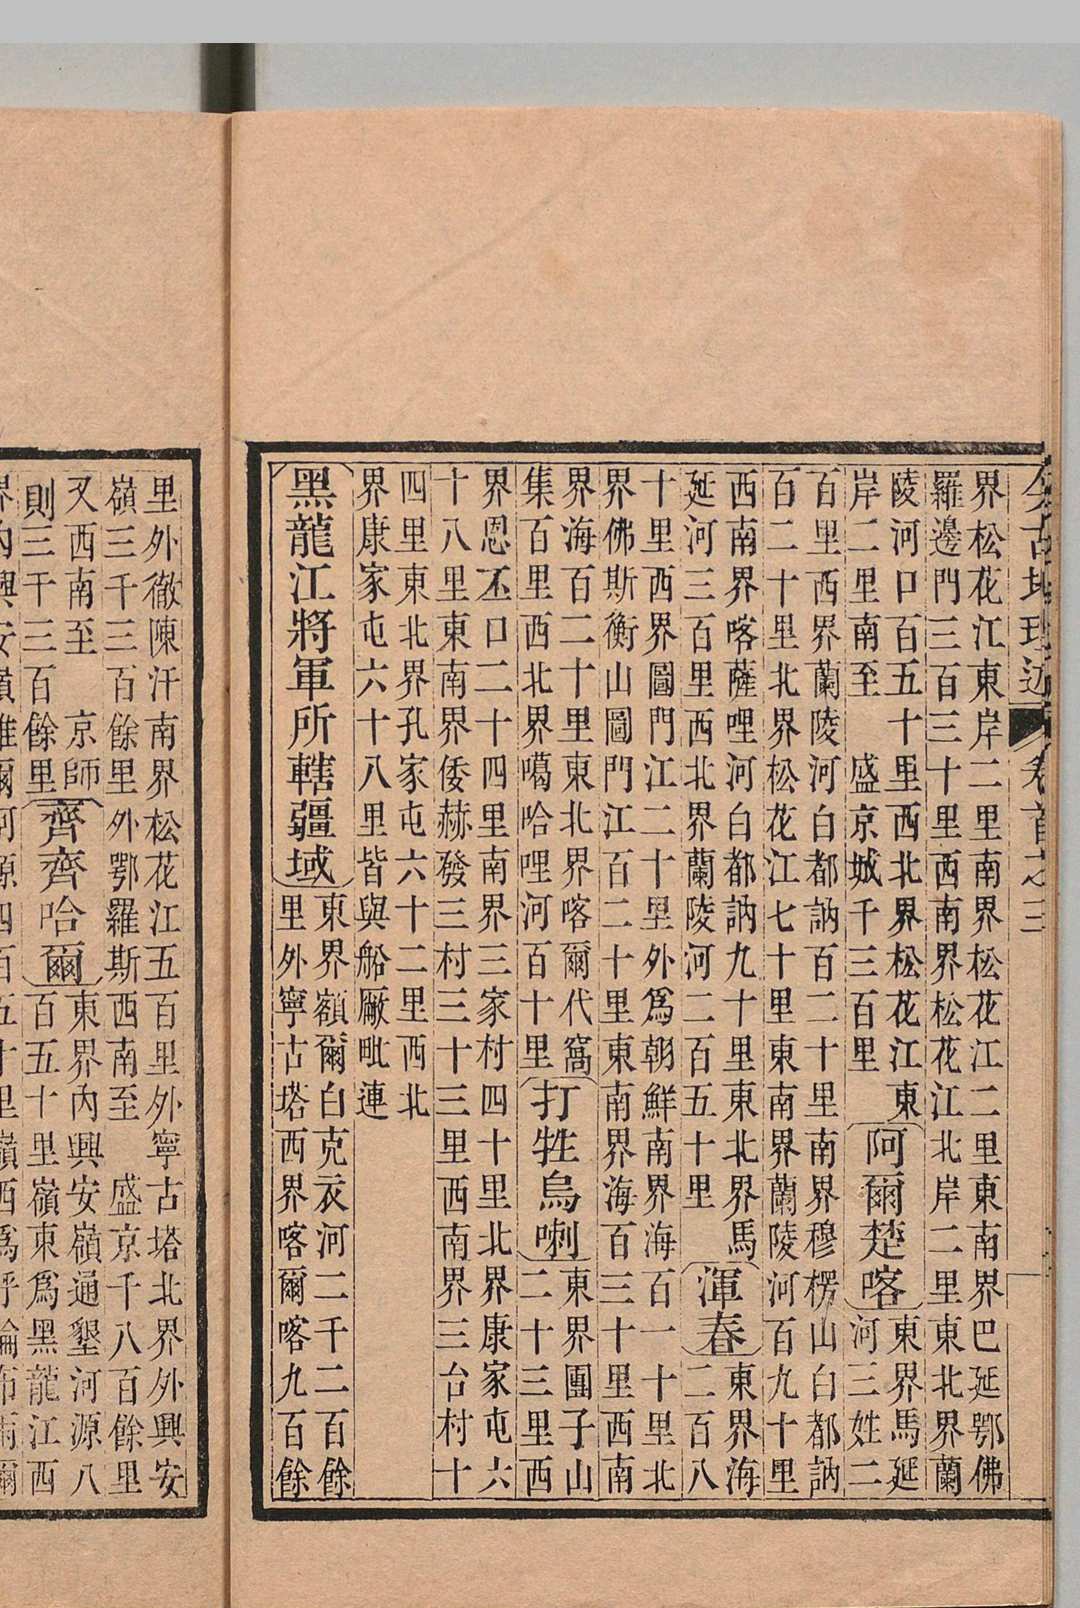 今古地理述 卷首之三
界松花江東岸二里南界松花江二里東南界巴延鄂佛
羅邊門三百三十里西南界松花江北岸二里東北界蘭
陵河口百五十里西北界松花江東
岸二里南至 盛京城千三百里
阿爾楚喀
東界馬延
河三姓二
百里西界蘭陵河白都訥百二十里南界穆楞山白都訥
百二十里北界松花江七十里東南界蘭陵河百九十里
西南界喀薩哩河白都訥九十里東北界馬
延河三百里西北界蘭陵河二百五十里
渾春
東界海
二百八
十里西界圖門江二十里外爲朝鮮南界海百一十里北
界佛斯衡山圖門江百二十里東南界海百三十里西南
界海百二十里東北界喀爾代窩
集百里西北界噶哈哩河百十里
打牲烏喇
東界團子山
二十三里西
界恩丕口二十四里南界三家村四十里北界康家屯六
十八里東南界倭赫發三村三十三里西南界三台村十
四里東北界孔家屯六十二里西北
界康家屯六十八里皆與船厰毗連
黑龍江將軍所轄疆域
東界額爾白克衣河二千二百餘
里外寧古塔西界喀爾喀九百餘
里外徹陳汗南界松花江五百里外寧古塔北界外興安
嶺三千三百餘里外鄂羅斯西南至 盛京千八百餘里
又西南至 京師
則三千三百餘里
齊齊哈爾
東界內興安嶺通墾河源八
百五十里嶺東爲黑龍江西